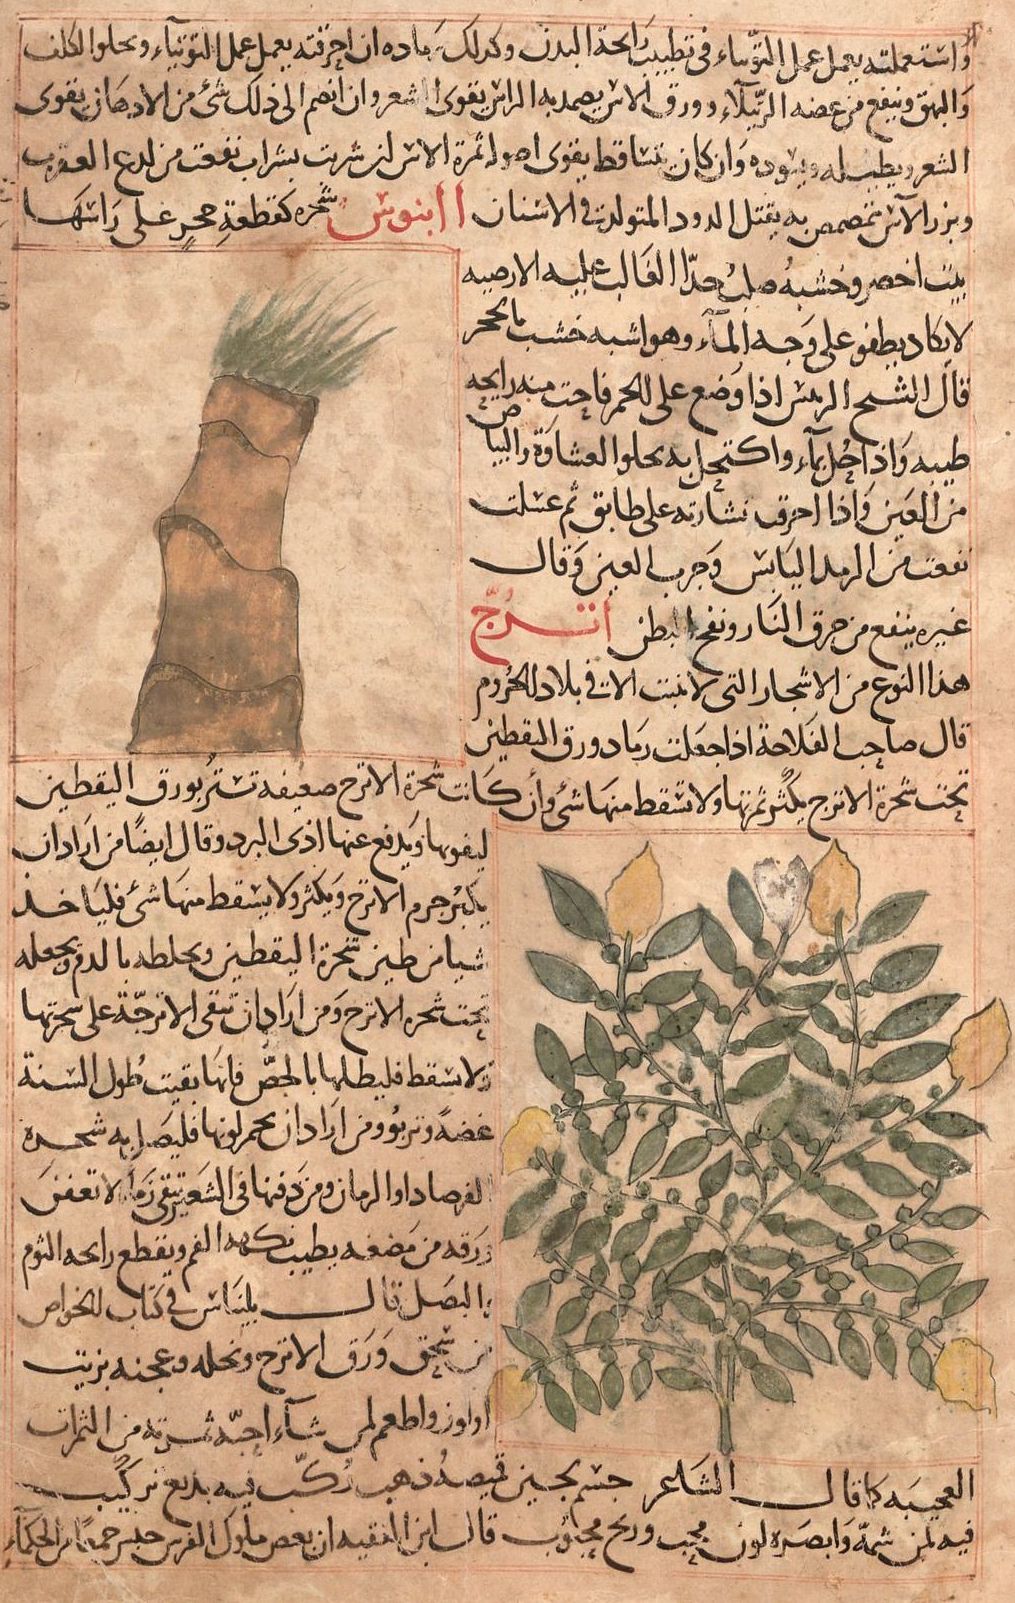 واستعملته يعمل عمل التوتياء فى تطييب رايحة البدن وكذلك رماده ان احرقته يعمل عمل التوتياء ويجلوا الكلف
والبهق وينفع من عضه الرتيلاء وورق الاس يضمد به الراس يقوى الشعر وان انضم الى ذلك شئ من الادهان يقوى
الشعر ويطيله ويسوده وان كان يتساقط يقوى اصوله ثمرة الاس ان شربت بشراب نفعت من لدع العقرب
وبزر الآس تمضمض به يقتل الدود المتولدة فى الاسنان ابنوس شجره كقطعة حجر على راسها
نبت اخضر وخشبه صلب جدا الغالب عليه الارضيه
لا يكاد يطفو على وجه المآء وهو اشبه خشب بالحجر
قال الشيخ الرييس اذا وضع على الجمر فاحت منه رايحه
طيبه واذا حل بمآء واكتحل به يجلوا الغشاوة والبياض
من العين واذا احرقت نشارته على طابق ثم غسلت
نفعت من الرمد اليابس وجرب العين وقال
غيره ينفع من حرق النار ونفخ البطن اترج
هذا النوع من الاشجار التى لا تنبت الا فى بلاد الجروم
قال صاحب الفلاحة اذا جعلت رماد ورق اليقطين
تحت شجرة الاترج يكثر ثمرتها ولا تسقط منها شئ وان كانت شجرة الاترج ضعيفه تستر بورق اليقطين
ليقويها ويدفع عنها اذى البرد وقال ايضا من اراد ان
يكبر جرم الاترج ويكثر ولا يسقط منها شئ فليأخذ
شيا من طين شجرة اليقطين ويخلطه بالدم ويجعله
تحت شجره الاترج ومن اراد ان تبقى الاترجة على شجرتها
ولا تسقط فليطلها بالجص فانها بقيت طول السنة
غضة وتربو ومن اراد ان يحمر لونها فليصل به شجرة
الفرصاد او الرمان ومن دفنها فى الشعير تبقى زمانا لا تعفن
ورقه من مضغه يطيب نكهه الفم ويقطع رايحه الثوم
والبصل قال بليناس فى كتاب الخواص
من سحق ورق الاترج ونخله وعجنه بزيت
او لوز واطعم لمن شآء احبه ثمرته من الثمرات
العجيبه كما قال الشاعر جسم لجين قميصه ذهب ركب فيه بديع تركيب
فيه لمن شمه وابصره لون محب وريح محبوب قال ابن الفقيه ان بعض ملوك الفرس حبس جمعا من الحكمآء